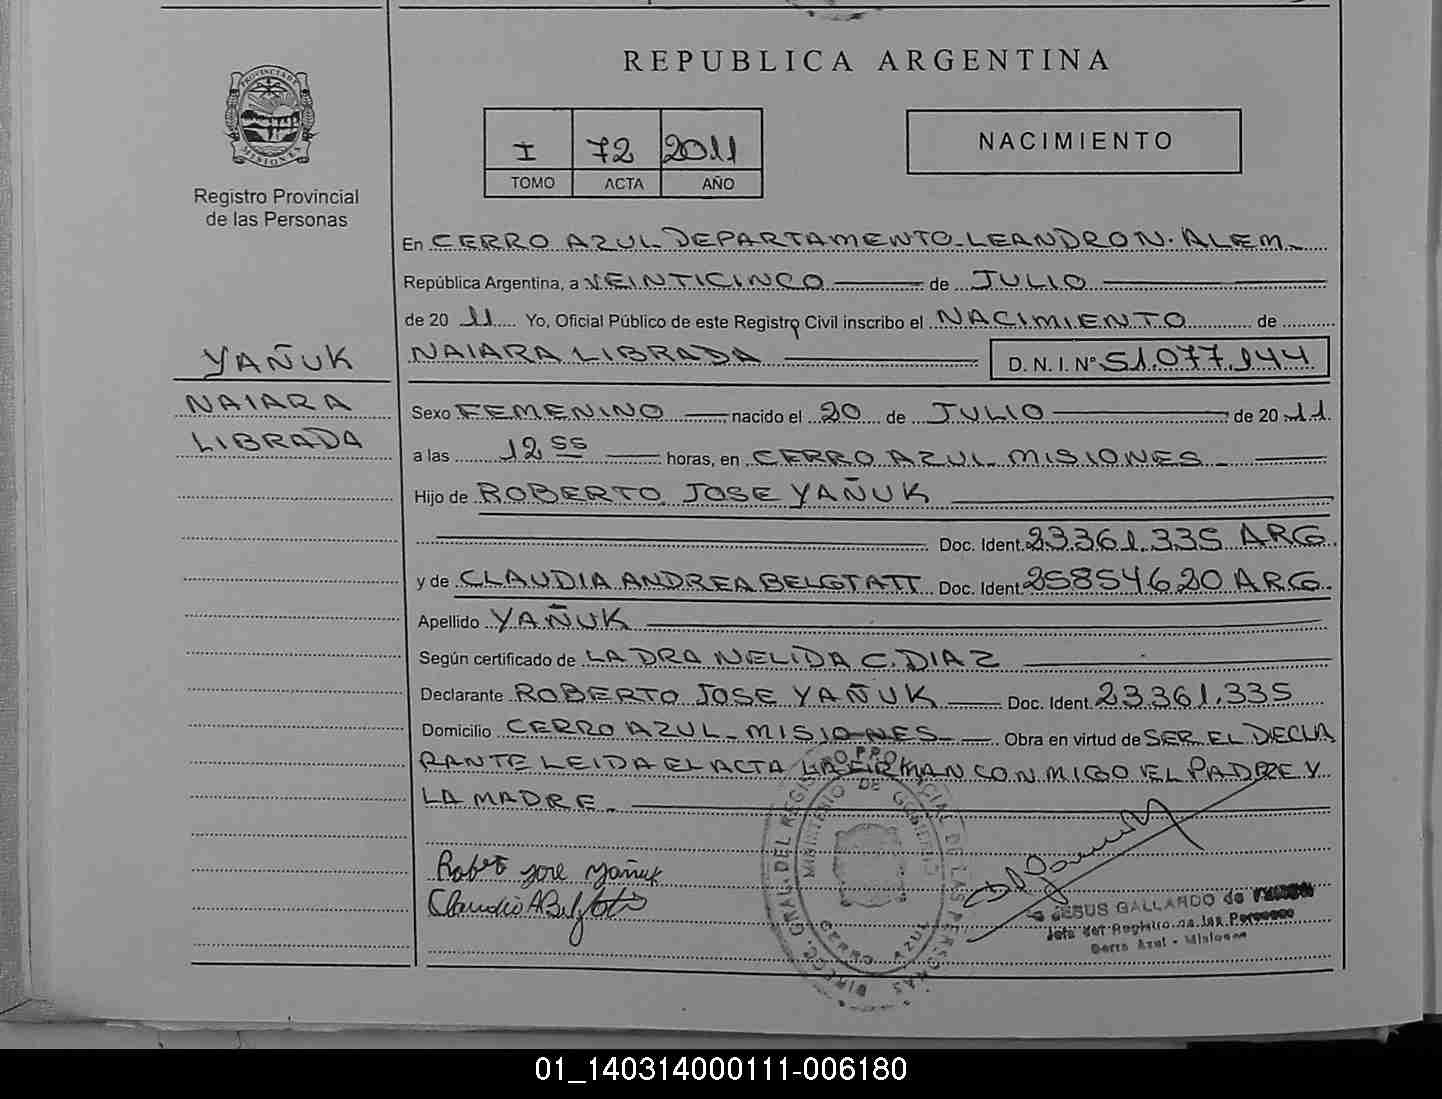 REPUBLICA ARGENTINA
PROVINCIA DE
MISIONES
Registro Provincial
de las Personas
I 72 2011
TOMO ACTA AÑO
NACIMIENTO
En CERRO AZUL DEPARTAMENTO-LEANDRO N. ALEM-
República Argentina, a VEINTICINCO de JULIO
de 2011 Yo, Oficial Público de este Registro Civil inscribo el NACIMIENTO de
NAIARA LIBRADA D. N. I. N° 51.077.144
YAÑUK
NAIARA
LIBRADA
Sexo FEMENINO nacido el 20 de JULIO de 2011
a las 12 55 horas, en CERRO AZUL - MISIONES -
Hijo de ROBERTO JOSE YAÑUK
Doc. Ident. 23.361.335 ARG.
y de CLAUDIA ANDREA BELGTATT Doc. Ident. 25854620 ARG.
Apellido YAÑUK
Según certificado de LA DRA NELIDA C. DIAZ
Declarante ROBERTO JOSE YAÑUK Doc. Ident. 23361.335
Domicilio CERRO AZUL - MISIONES - Obra en virtud de SER EL DECLA
RANTE LEIDA EL ACTA LA FIRMAN CONMIGO EL PADRE Y
LA MADRE -
DIRECC. GRAL. DEL REGISTRO PROVINCIAL DE LAS PERSONAS
MINISTERIO DE GOBIERNO
CERRO AZUL
Roberto José Yañuk
JESUS GALLARDO de
Jefa del Registro de las Personas
Cerro Azul - Misiones
01_140314000111-006180